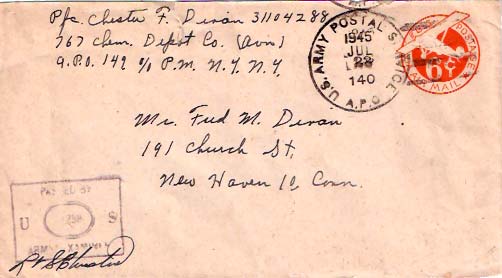 Pfc. Chester F. Divan 31104288
767 Chem. Depot Co. (Avn)
A.P.O. 149 c/o P.M. N.Y. N.Y.
U.S. ARMY POSTAL SERVICE
1945
JUL
22
140
A.P.O.
U.S. POSTAGE
6
AIR MAIL
Mr. Fred M. Divan
191 Church St,
New Haven 10, Conn.
PASSED BY
U S
ARMY EXAMINER